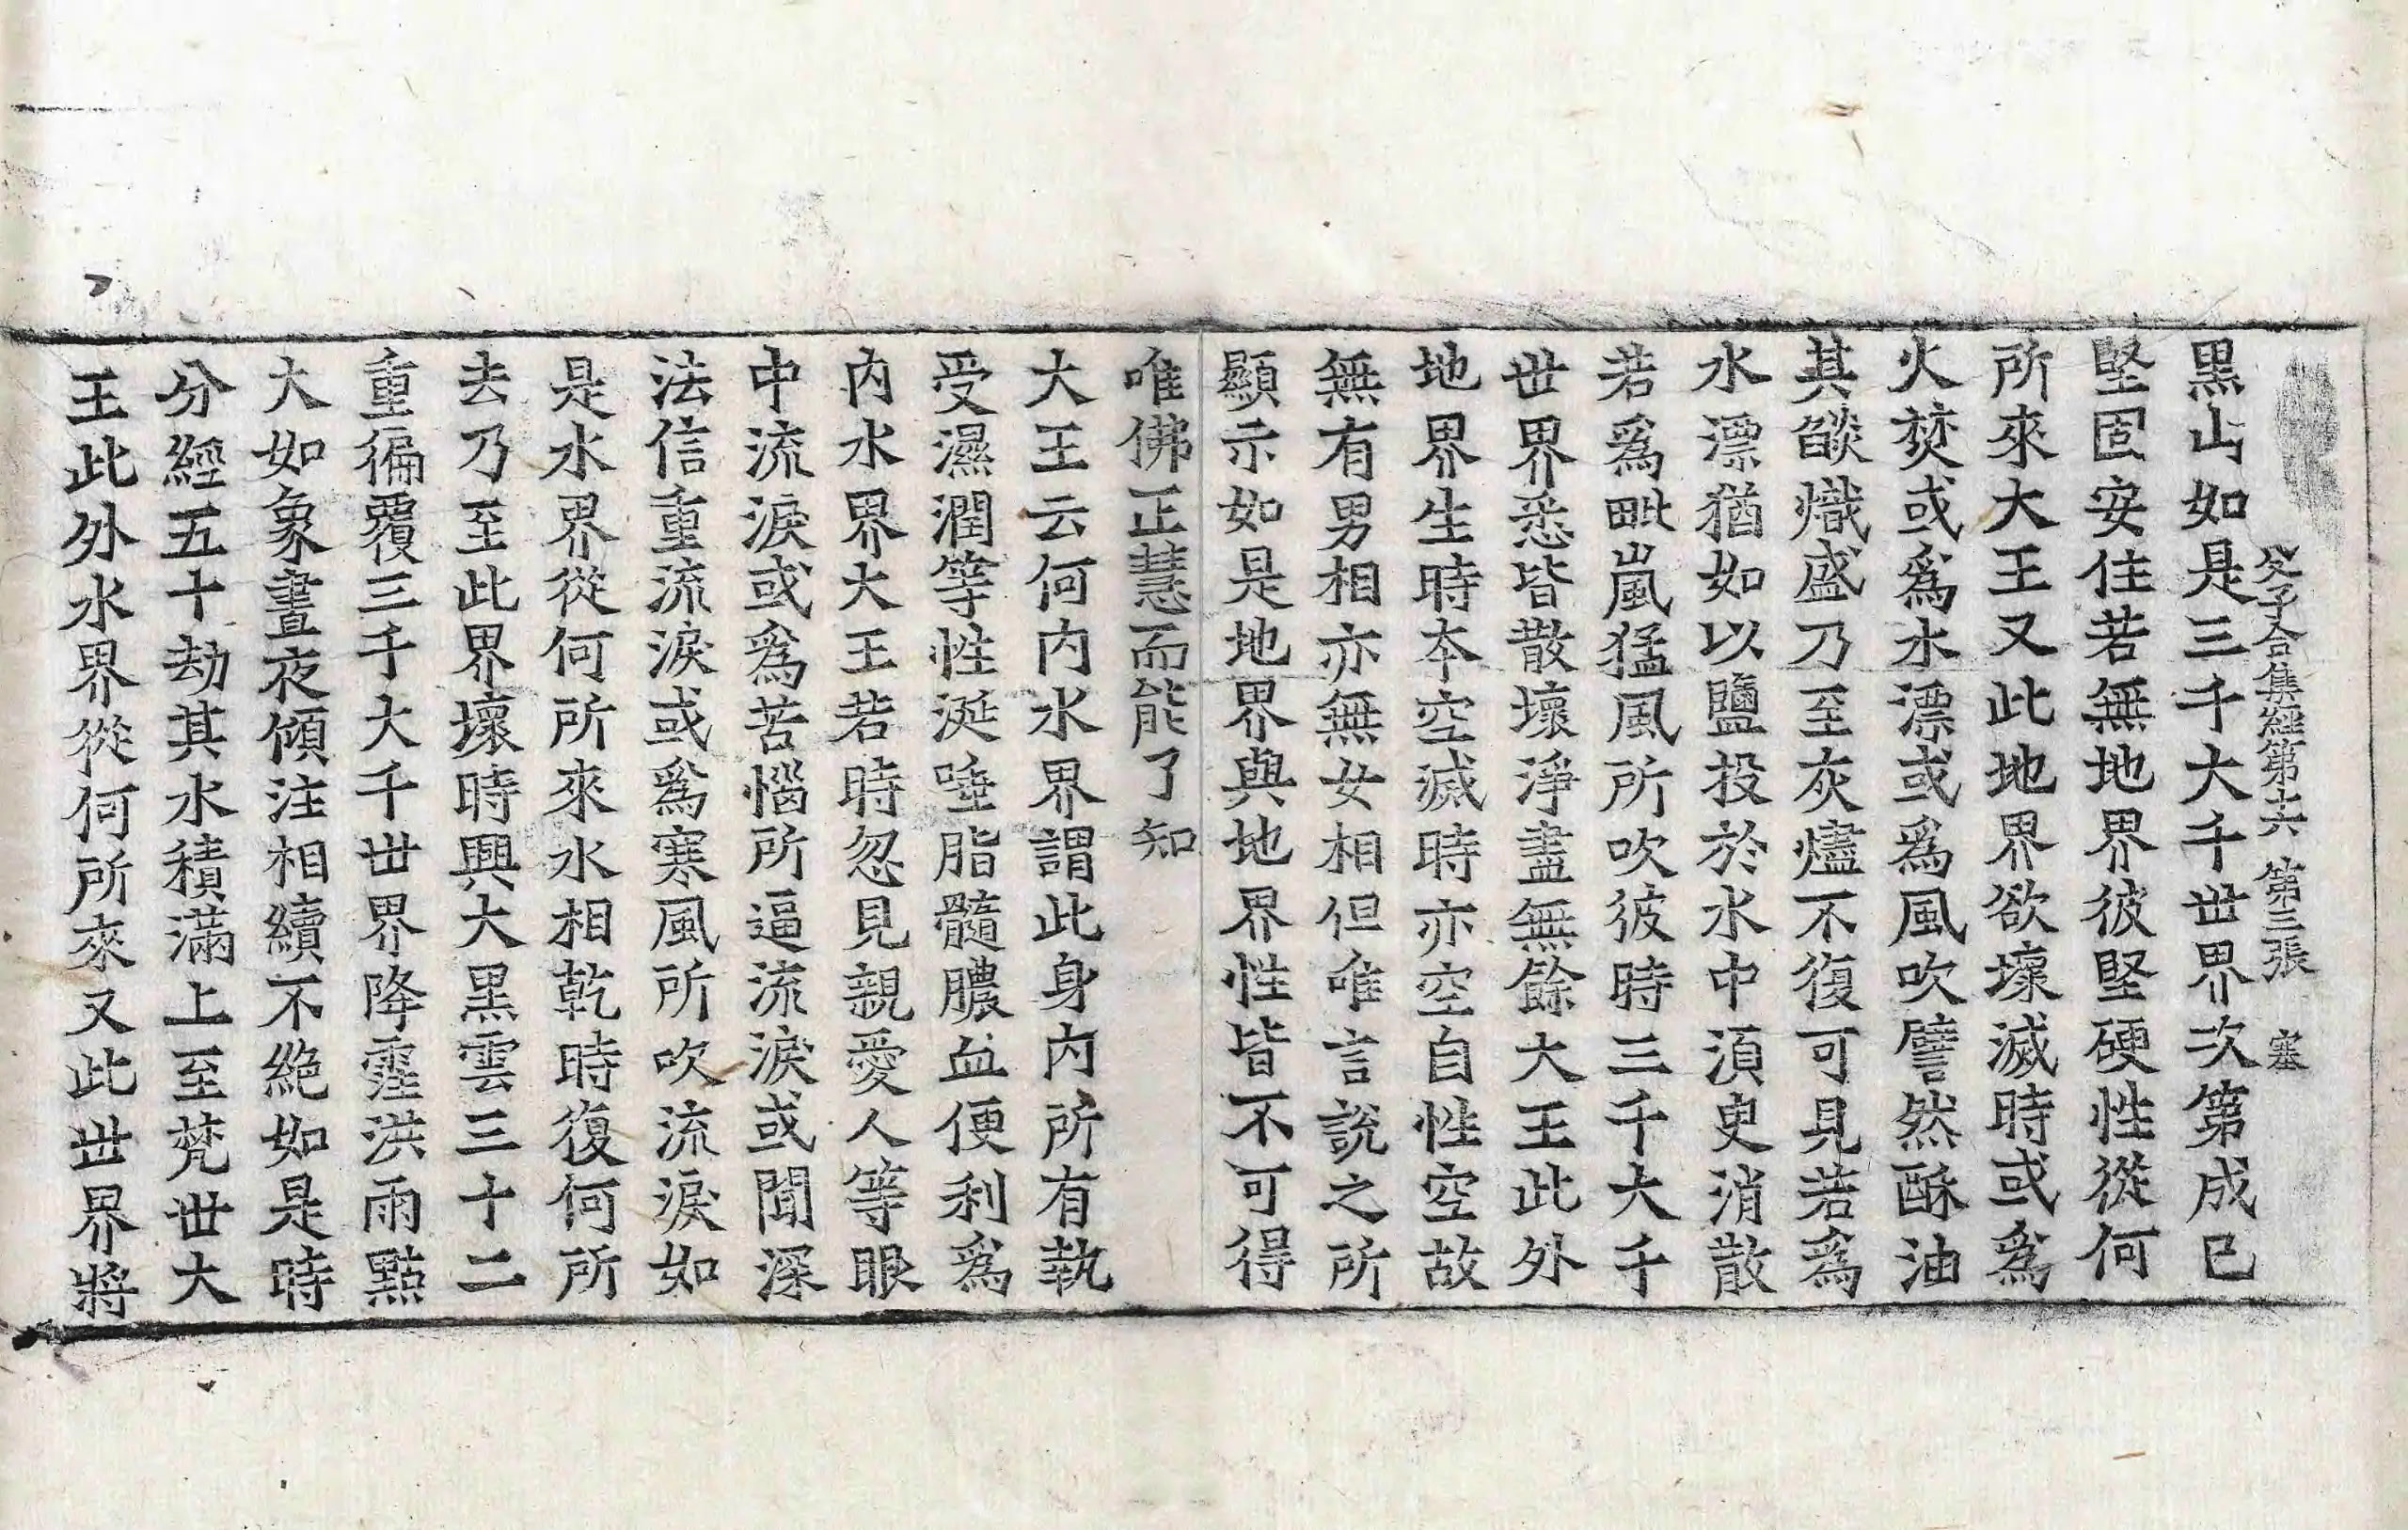 父子合集經第六 第三張 塞
黒山如是三千大千世界次第成已
堅固安住若無地界彼堅硬性從何
所來大王又此地界欲壞滅時或爲
火焚或爲水漂或爲風吹譬然酥油
其燄熾盛乃至灰燼不復可見若爲
水漂猶如以鹽投於水中湏臾消散
若爲毗嵐猛風所吹彼時三千大千
世界悉皆散壞淨盡無餘大王此外
地界生時本空滅時亦空自性空故
無有男相亦無女相但唯言說之所
顯示如是地界與地界性皆不可得
唯佛正慧而能了知
大王云何内水界謂此身内所有執
受濕潤等性涎唾脂髓膿血便利爲
内水界大王若時忽見親愛人等眼
中流淚或爲苦惱所逼流淚或聞深
法信重流淚或爲寒風所吹流淚如
是水界從何所來水相乾時復何所
去乃至此界壞時興大黒雲三十二
重徧覆三千大千世界降霔洪雨點
大如象晝夜傾注相續不絶如是時
分經五十劫其水積滿上至梵世大
王此外水界從何所來又此世界將